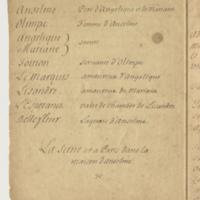 Anselme Père d'Angelique et de Mariane
Olimpe Femme d'Anselme
Angelique
Mariane soeurs
Toinon servante d'Olimpe
Le Marquis amoureux d'Angelique
Lisandre amoureux de Mariane
L'Esperance valet de chambre de Lisandre
Bellefleur laquais d'Anselme
La scene est a Paris dans la
maison d'Anselme